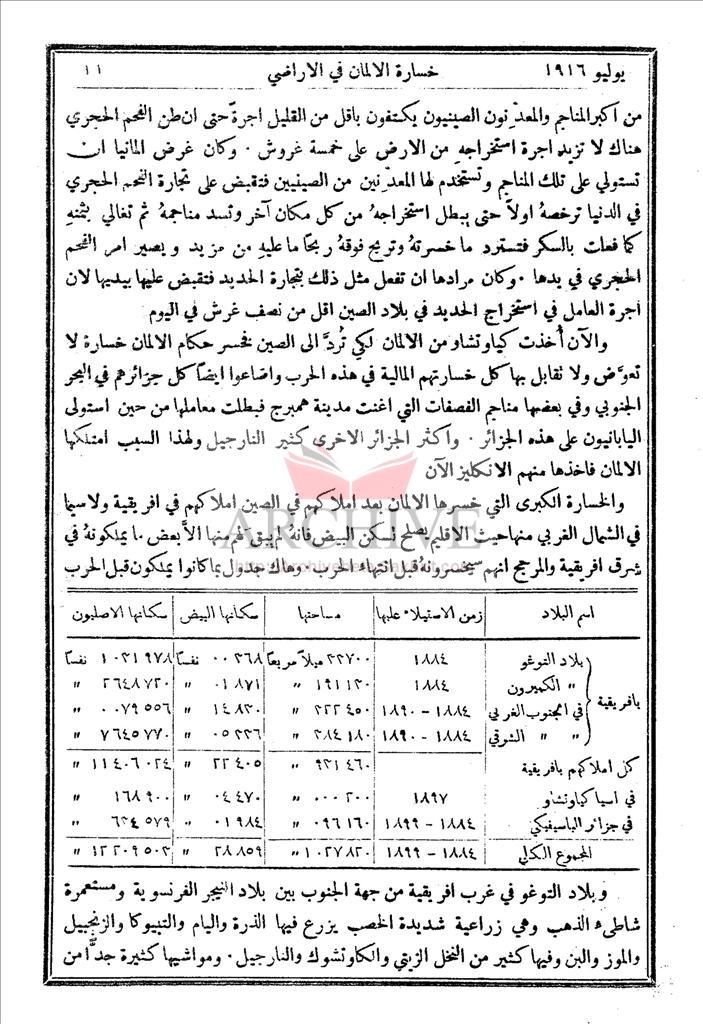 يوليو ١٩١٦ خسارة الالمان في الاراضي ١١
من اكبر المناجم والمعدّنون الصينيون يكتفون باقل من القليل اجرةً حتى ان طن الفحم الحجري
هناك لا تزيد اجرة استخراجهِ من الارض على خمسة غروش . وكان غرض المانيا ان
تستولي على تلك المناجم وتستخدم لها المعدّنين من الصينيين فتقبض على تجارة الفحم الحجري
في الدنيا ترخصهُ اولاً حتى يبطل استخراجهُ من كل مكان آخر وتسد مناجمهُ ثم تغالي بثمنهِ
كما فعلت بالسكر فتسترد ما خسرتهُ وتربح فوقهُ ربحًا ما عليهِ من مزيد و يصير امر الفحم
الحجري في يدها . وكان مرادها ان تفعل مثل ذلك بتجارة الحديد فتقبض عليها بيديها لان
اجرة العامل في استخراج الحديد في بلاد الصين اقل من نصف غرش في اليوم
والآن أُخذت كياوتشاو من الالمان لكي تُردَّ الى الصين فخسر حكام الالمان خسارة لا
تعوَّض ولا تقابل بها كل خسارتهم المالية في هذه الحرب واضاعوا ايضاً كل جزائرهم في البحر
الجنوبي وفي بعضها مناجم الفصفات التي اغنت مدينة همبرج فبطلت معاملها من حين استولى
اليابانيون على هذه الجزائر . واكثر الجزائر الاخرى كثير النارجيل ولهذا السبب امتلكها
الالمان فاخذها منهم الانكليز الآن
والخسارة الكبرى التي خسرها الالمان بعد املاكهم في الصين املاكهم في افريقية ولاسيما
في الشمال الغربي منها حيث الاقليم يصلح لسكن البيض فانهُ لم يبق لهم منها الاَّ بعض ما يملكونهُ في
شرق افريقية والمرجح انهم سيخسرونهُ قبل انتهاء الحرب . وهاك جدول بما كانوا يملكون قبل الحرب
اسم البلاد زمن الاستيلاء عليها مساحتها سكانها البيض سكانها الاصليون
بلاد التوغو ١٨٨٤ ٣٣٧٠٠ ميلاً مربعاً ٠٠٣٦٨ نفساً ١٠٣١٩٧٨ نفساً
بافريقية
" الكميرون ١٨٨٤ ١٩١١٣٠ " ٠١٨٧١ " ٢٦٤٨٧٢٠ "
في الجنوب الغربي ١٨٨٤ – ١٨٩٠ ٣٢٢٤٥٠ " ١٤٨٣٠ " ٠٠٧٩٥٥٦ "
" " الشرقي ١٨٨٤ – ١٨٩٠ ٣٨٤١٨٠ " ٠٥٣٣٦ " ٧٦٤٥٧٧٠ "
كل املاكهم بافريقية ٩٣١٤٦٠ " ٢٢٤٠٥ " ١١٤٠٦٠٢٤ "
في اسيا كياوتشاو ١٨٩٧ ٠٠٠٢٠٠ " ٠٤٤٧٠ " ١٦٨٩٠٠ "
في جزائر الباسيفيكي ١٨٨٤ – ١٨٩٩ ٠٩٦١٦٠ " ٠١٩٨٤ " ٦٣٤٥٧٩ "
المجموع الكلي ١٨٨٤ – ١٨٩٩ ١٠٢٧٨٢٠ " ٢٨٨٥٩ " ١٢٢٠٩٥٠٣ "
و بلاد التوغو في غرب افريقية من جهة الجنوب بين بلاد النيجر الفرنسوية ومستعمرة
شاطىء الذهب وهي زراعية شديدة الخصب يزرع فيها الذرة واليام والتبيوكا والزنجبيل
والموز والبن وفيها كثير من النخل الزيتي والكاوتشوك والنارجيل . ومواشيها كثيرة جدًّا من
ARCHIVE